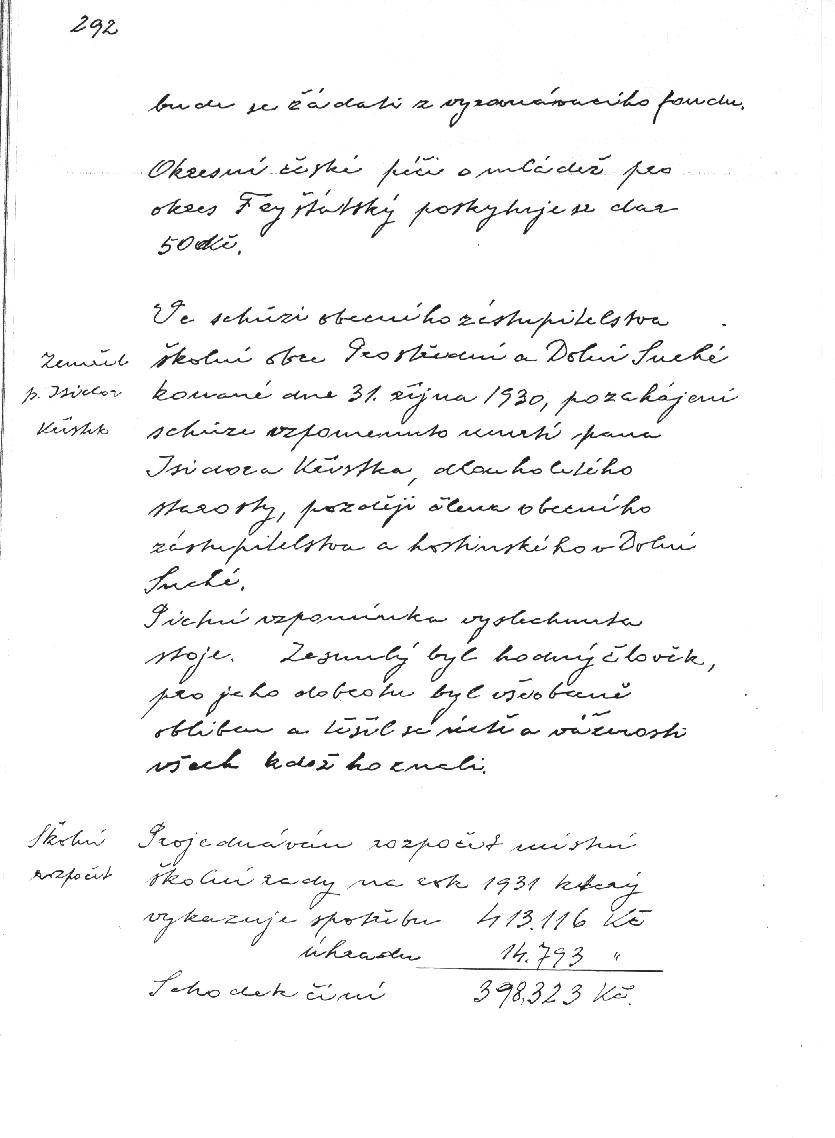 292
bude se žádati z vyrovnávacího fondu.
Okresní české péči o mládež pro
okres Fryštátský poskytuje se dar
50 Kč.
Ve schůzi obecního zástupitelstva
školní obce Prostřední a Dolní Suché
konané dne 31. října 1930, po zahájení
schůze vzpomenuto úmrtí pana
Isidora Křístka, dlouholetého
starosty, později člena obecního
zástupitelstva a hostinského v Dolní
Suché.
Pietní vzpomínka vyslechnuta
stoje. Zesnulý byl hodný člověk,
pro jeho dobrotu byl všeobecně
oblíben a těšil se úctě a vážnosti
všech kdož ho znali.
Zemřel
p. Isidor
Křístek
Školní
rozpočet
Projednáván rozpočet místní
školní rady na rok 1931 který
vykazuje spotřebu 413.116 Kč
úhradu 14.793 "
Schodek činí 398.323 Kč.